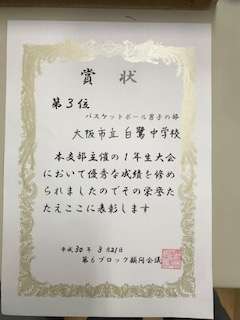 賞状
第3位
バスケットボール男子の部
大阪市立白鷺中学校
本支部主催の1年生大会
において優秀な成績を修め
られましたのでその栄誉たた
たえここに表彰します
平成30年3月21日
第6ブロック顧問会議